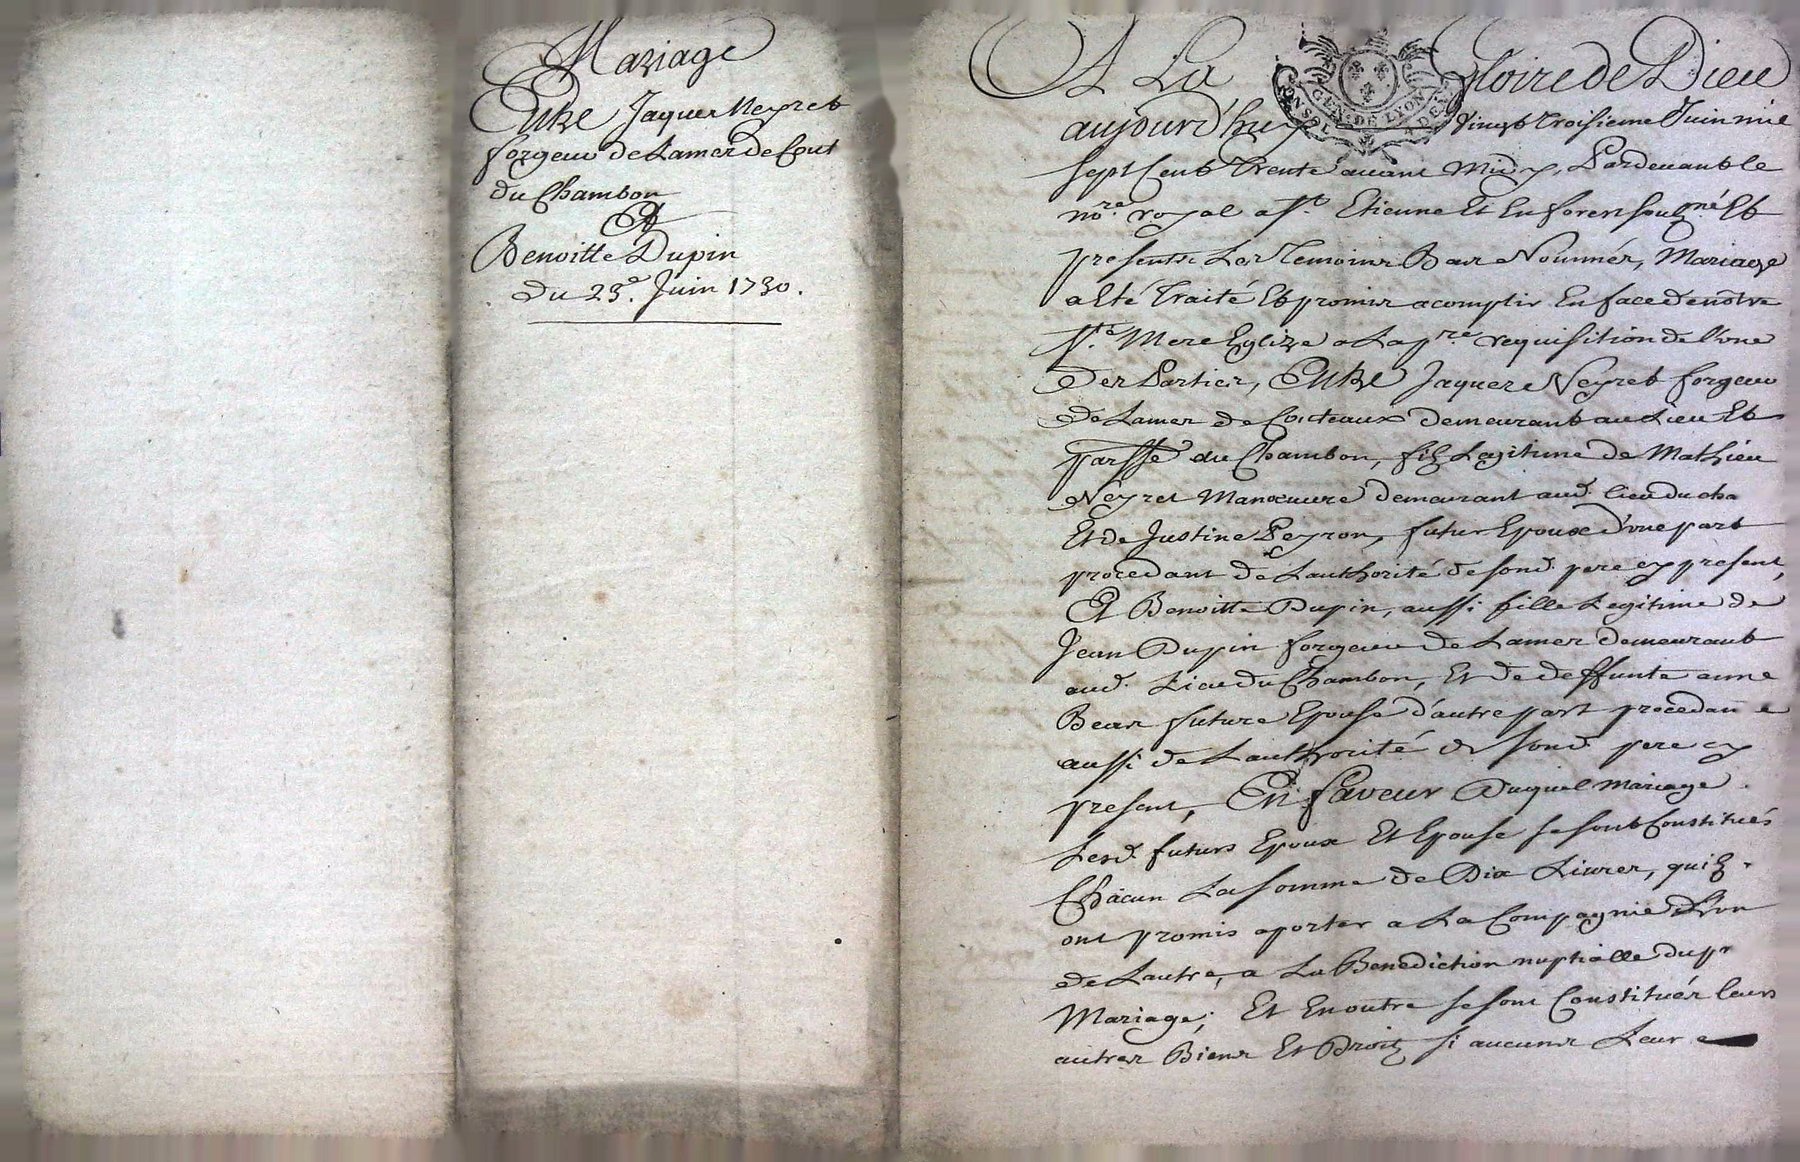 Mariage
Entre Jaques Neyret
forgeur de Lames de Cout
du Chambon
Et
Benoitte Dupin
du 23e. Juin 1730.
A La Gloire de Dieu
GEN. DE LYON
aujourd'huy vingt troisieme Juin mil
sept Cent trente avant Midy, Pardevant le
nore. royal a St. Etienne Et En forest soubzné Et
presents Les Temoins Bas Nommés, Mariage
a Eté Traité Et promis acomplir En face de nôtre
Ste. Mere Eglize a La pre. requisition de l'une
des Parties, Entre Jaques Neyret forgeur
de Lames de Couteaux demeurant au Lieu Et
parsse du Chambon, filz Legitime de Mathieu
Neyret Manoeuvre demeurant aud. lieu du cha
Et de Justine Peyron, futur Epoux d'une part
procedant de Lauthorité de sond. pere cy present,
Et Benoitte Dupin, aussi fille Legitime de
Jean Dupin forgeur de Lames demeurant
aud. Lieu du Chambon, Et de deffunte anne
Beas future Epouse d'autre part procedante
aussi de Lauthorité de sond. pere cy
present, En faveur Duquel mariage
Lesd. futurs Epoux Et Epouse se sont Constitués
Chacun La somme de Dix Livres, quilz
ont promis aporter a La Compagnie L'un
de Lautre, a La Benediction nuptialle du pr
Mariage; Et En outre se sont Constitués leurs
autres Biens Et Droitz si aucuns Leur